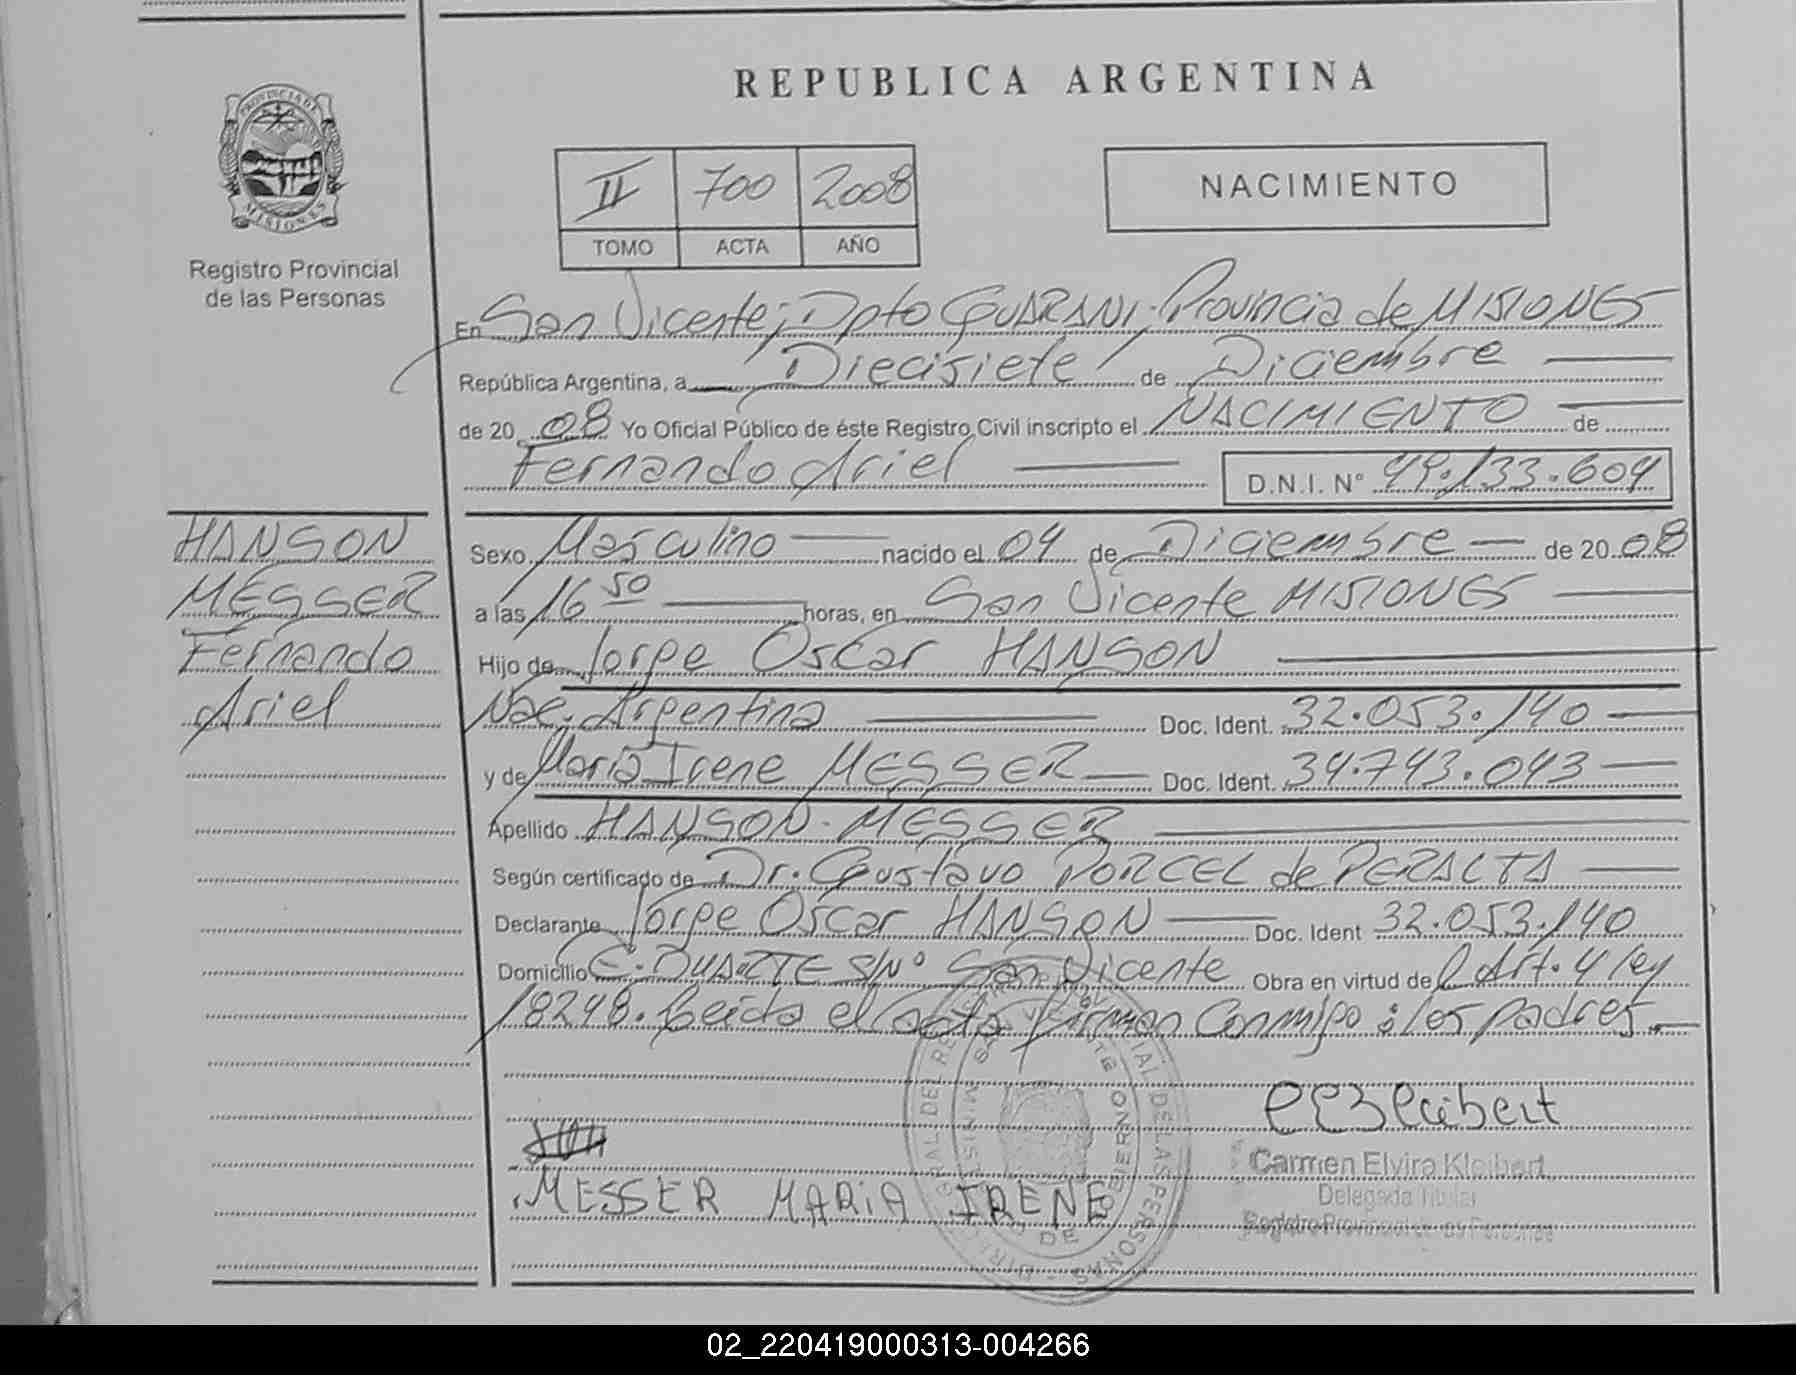 REPUBLICA ARGENTINA
PROVINCIA DE
MISIONES
Registro Provincial
de las Personas
II 700 2008
TOMO ACTA AÑO
NACIMIENTO
En San Vicente; Dpto GUARANI, Provincia de MISIONES
República Argentina, a Diecisiete de Diciembre
de 20 08 Yo Oficial Público de éste Registro Civil inscripto el NACIMIENTO de
Fernando Ariel D.N.I. Nº 49.133.604
HANSON
MESSER
Fernando
Ariel
Sexo Masculino nacido el 04 de Diciembre de 20 08
a las 16 50 horas, en San Vicente MISIONES
Hijo de Jorge Oscar HANSON
Nac. Argentina Doc. Ident. 32.053.140
y de Maria Irene MESSER Doc. Ident. 34.743.043
Apellido HANSON - MESSER
Según certificado de Dr. Gustavo PORCEL de PERALTA
Declarante Jorge Oscar HANSON Doc. Ident 32.053.140
Domicilio E. DUARTE S/Nº San Vicente Obra en virtud del Art. 4 ley
18248. Leída el acta Firman Conmigo: los padres.
CEKleibert
Carmen Elvira Kleibert
Delegada Titular
Registro Provincial de las Personas
MESSER MARiA IRENE
02_220419000313-004266